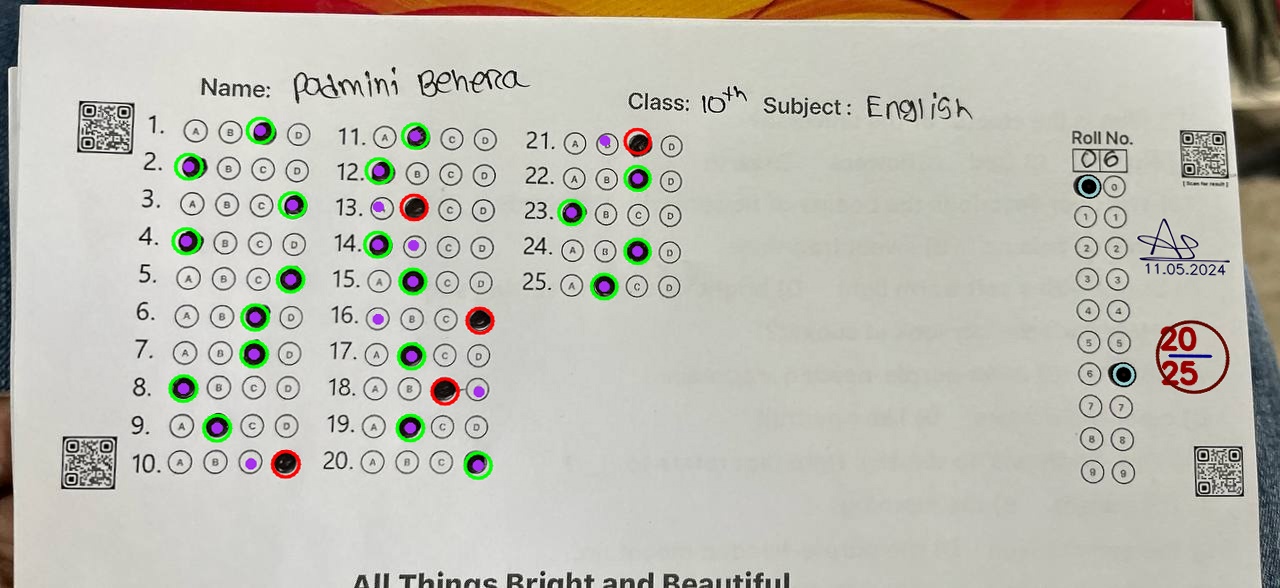 Name: Padmini Behera
Class: 10th Subject: English
1. A B D
2. B C D
3. A B C
4. B C D
5. A B C
6. A B D
7. A B D
8. B C D
9. A C D
10. A B
11. A C D
12. B C D
13. C D
14. C D
15. A C D
16. B C
17. A C D
18. A B
19. A C D
20. A B C
21. A B D
22. A B D
23. B C D
24. A B D
25. A C D
Roll No.
06
0
1 1
2 2
3 3
4 4
5 5
6
7 7
8 8
9 9
[Scan for result]
11.05.2024
20
25
All Things Bright and Beautiful